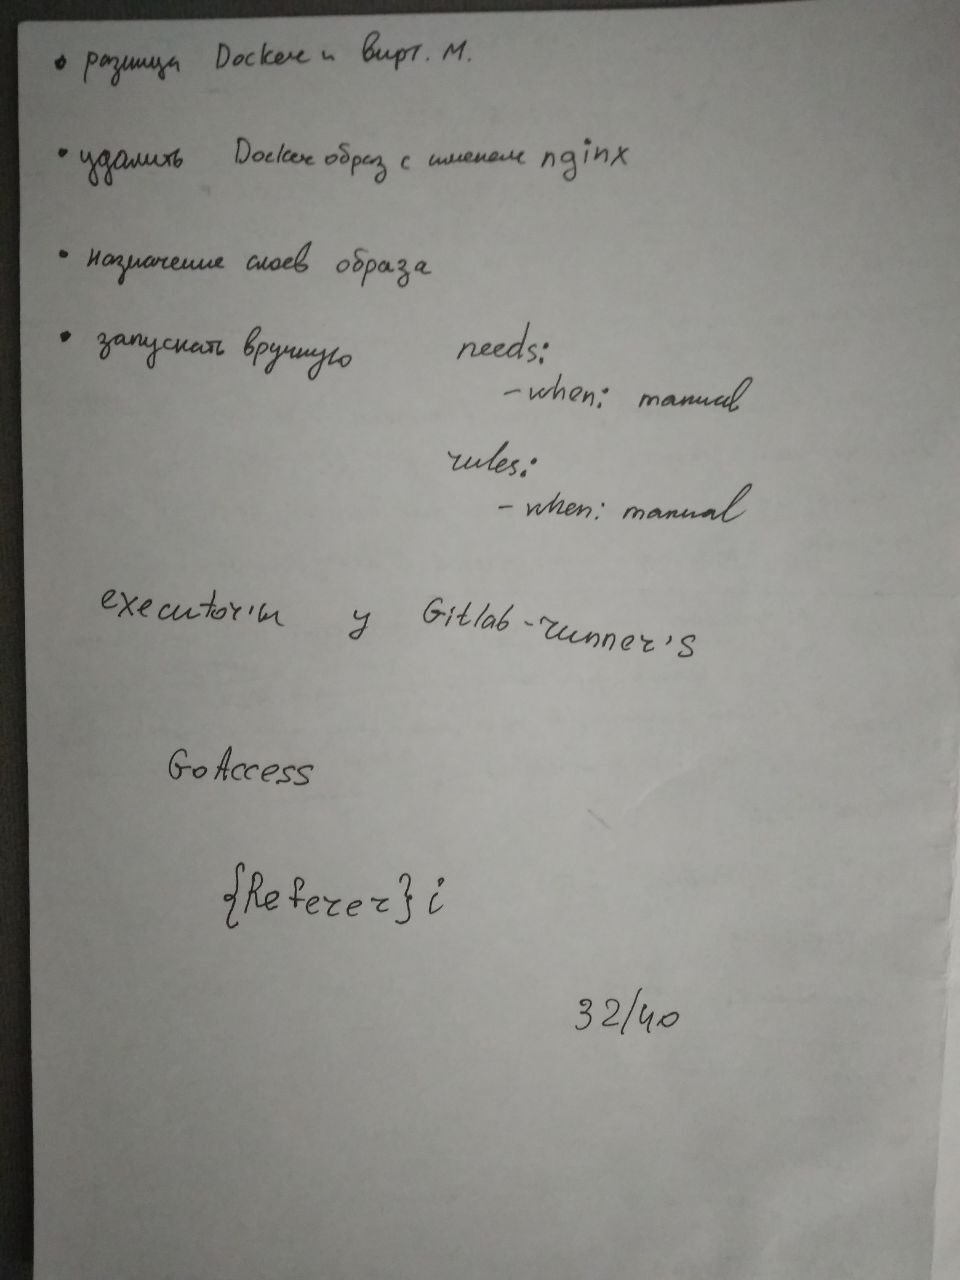 • разница Docker и вирт. м.
• удалить Docker образ с именем nginx
• назначение слоев образа
• запускать вручную needs:
- when: manual
rules:
- when: manual
executor'ы у Gitlab-runner's
GoAccess
{Referer}i
32/40